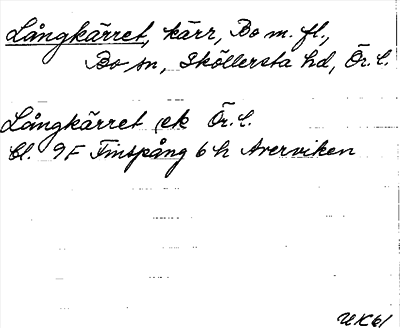 Långkärret, kärr, Bo m. fl.,
Bo sn, Sköllersta hd, Ör. l.
Långkärret ek Ör. l.
Bl. 9 F Finspång 6 h Averviken
UK61